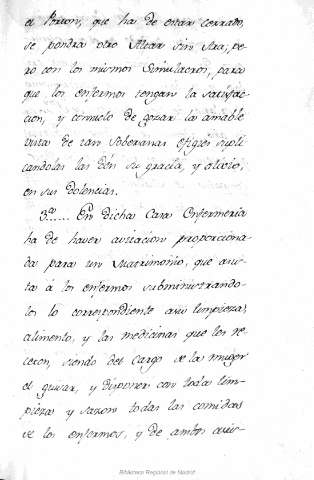 el Porton, que ha de estar cerrado,
se pondrá otro Altar sin Ara, pe-
ro con los mismos Simulacros, para
que los enfermos tengan la satisfac-
cion, y consuelo de gozar la amable
vista de tan Soberanas efigies supli
candolas las dén su gracia, y alivio,
en sus dolencias.
3.ª..... En dicha Casa Enfermeria
ha de haver avitacion proporciona-
da para un Matrimonio, que asis-
ta á los enfermos subministrando-
los lo correspondiente a su limpieza,
alimento, y las medicinas que los re-
ceten, siendo del cargo de la muger
el guisar, y disponer con toda lim-
pieza y sazon todas las comidas
de los enfermos, y de ambos asis-
Biblioteca Regional de Madrid